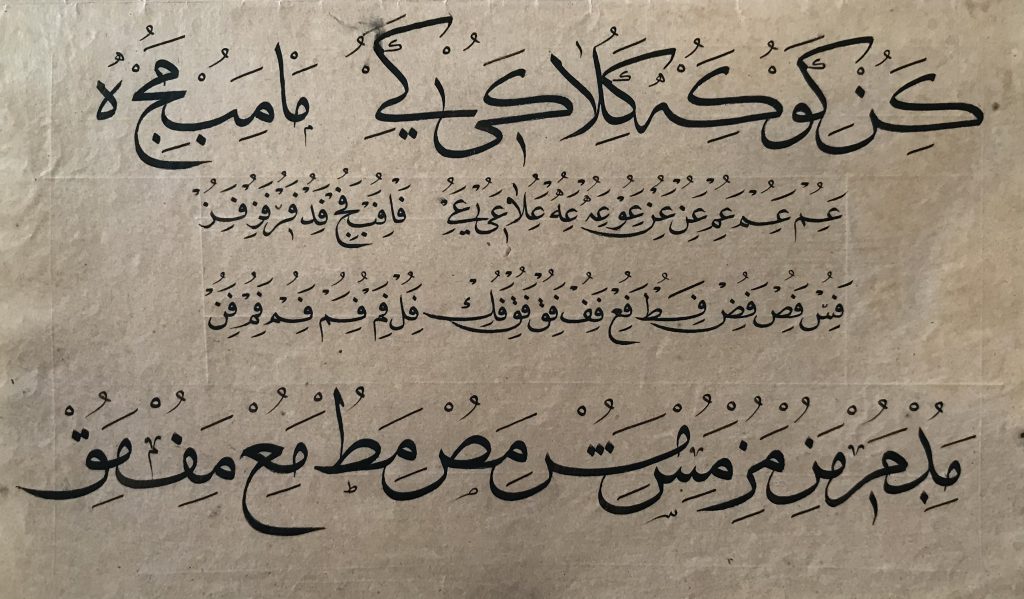 كن كو كه كلا كى كے ما مب مج ه
عم عم عم عن عن عو عه عه علا عى عے فا فب فج فد فر
فس فص فض فط فع فف فق فق فك فل فم فم فم فم فن
مد مر من مز مس مش مص مط مع مف مق